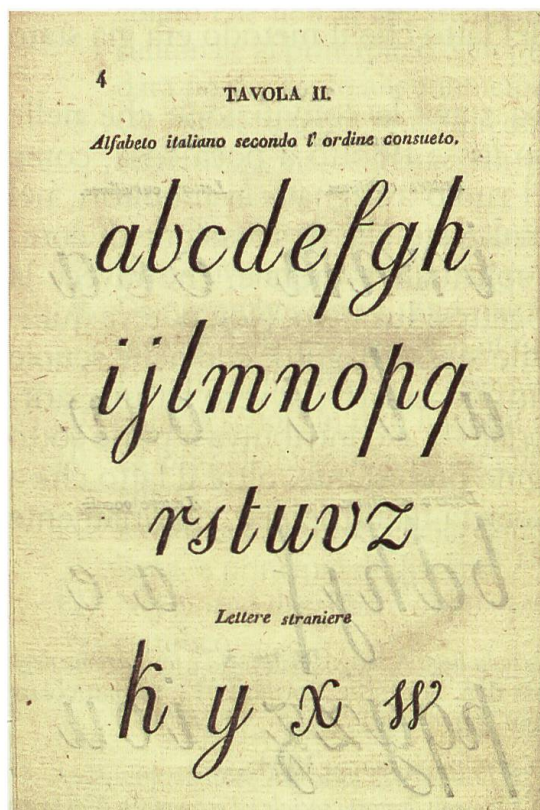 4
TAVOLA II.
Alfabeto italiano secondo l' ordine consueto.
abcdefgh
ijlmnopq
rstuvz
Lettere straniere
k y x w